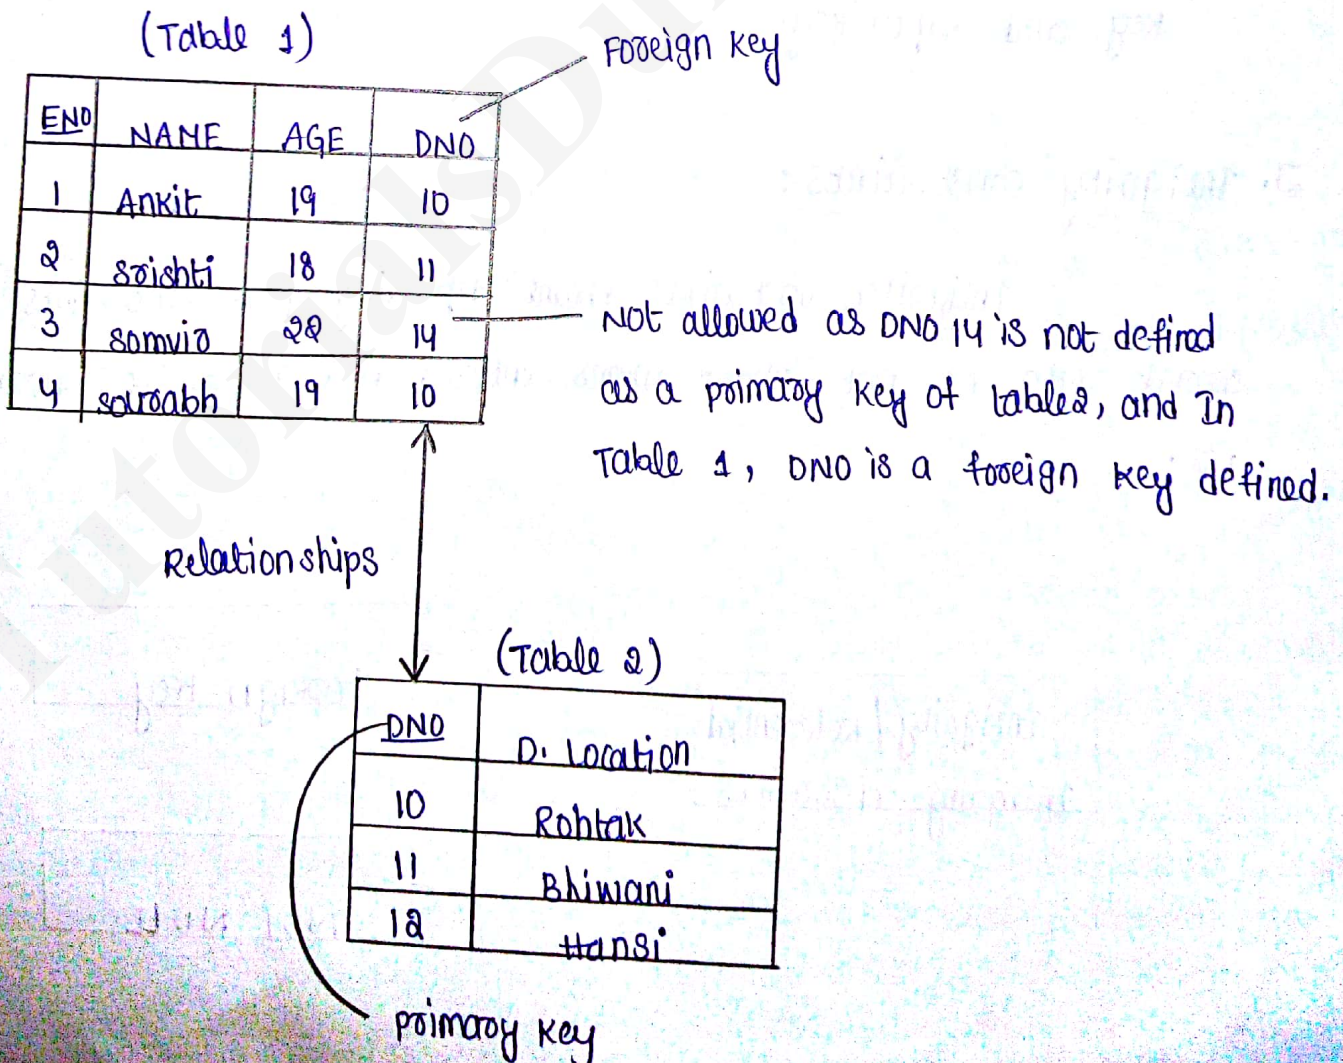 (Table 1)
Foreign Key
ENO NAME AGE DNO
1 Ankit 19 10
2 Srishti 18 11
3 Somvir 22 14
4 Sourabh 19 10
Not allowed as DNO 14 is not defined
as a primary key of table2, and In
Table 1, DNO is a foreign key defined.
Relationships
(Table 2)
DNO D. Location
10 Rohtak
11 Bhiwani
12 Hansi
primary key